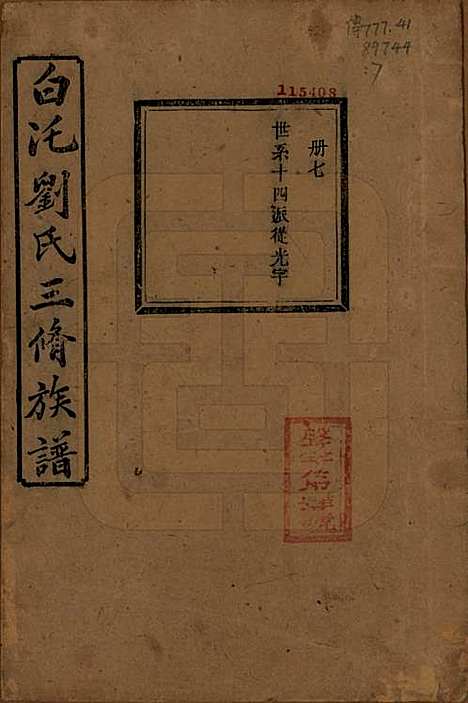 傳777.41
89744
:7
115408
册七
世系十四派從光宇
白沱劉氏三脩族譜